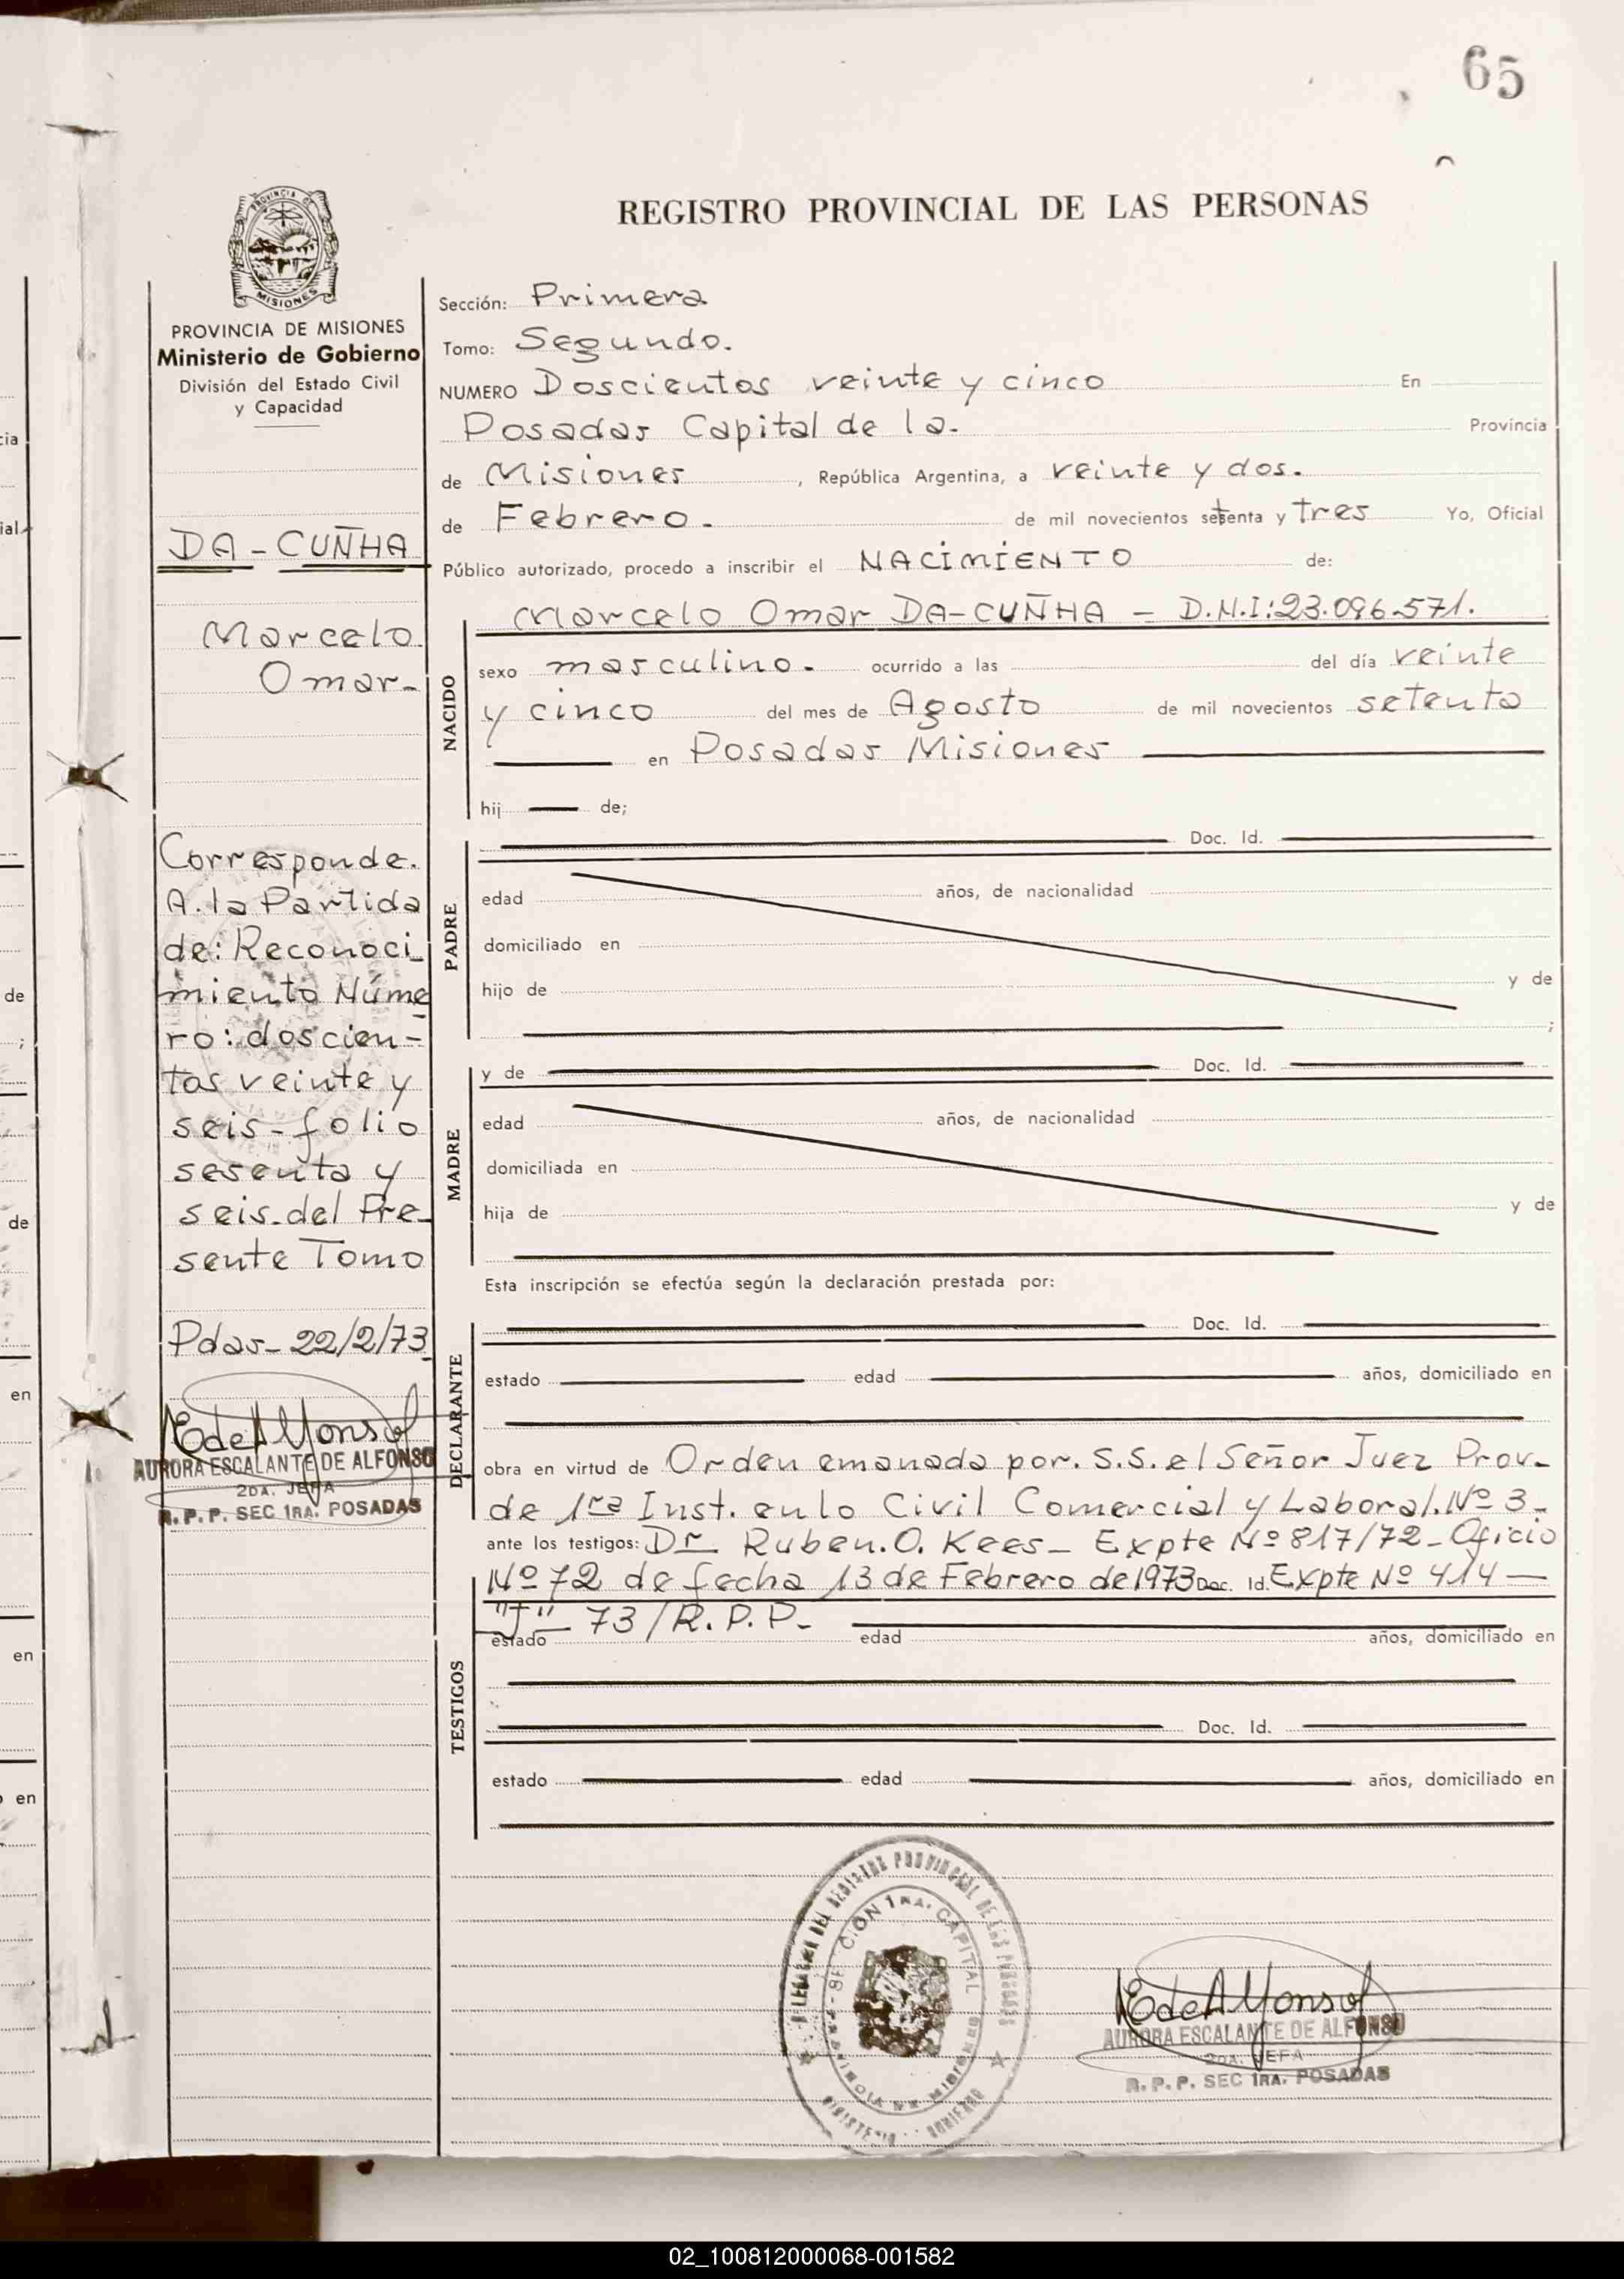 65
REGISTRO PROVINCIAL DE LAS PERSONAS
MISIONES
PROVINCIA DE MISIONES
Ministerio de Gobierno
División del Estado Civil
y Capacidad
DA-CUÑHA
Marcelo
Omar-
Corresponde.
A.la Partida
de: Reconoci
miento Núme
ro: doscien-
tos veinte y
seis-folio
sesenta y
seis-del Pre-
sente Tomo
Pdas-22/2/73
AURORA ESCALANTE DE ALFONSO
2DA. JEFA
R.P.P. SEC 1RA. POSADAS
Sección: Primera
Tomo: Segundo.
NUMERO Doscientos veinte y cinco En
Posadas Capital de la. Provincia
de Misiones, República Argentina, a veinte y dos.
de Febrero. de mil novecientos setenta y tres Yo, Oficial
Público autorizado, procedo a inscribir el NACIMIENTO de:
NACIDO
Marcelo Omar DA-CUÑHA - D.N.I:23.096.571.
sexo masculino. ocurrido a las del día veinte
y cinco del mes de Agosto de mil novecientos setenta
en Posadas Misiones
hij de;
PADRE
Doc. Id.
edad años, de nacionalidad
domiciliado en
hijo de y de
;
MADRE
y de Doc. Id.
edad años, de nacionalidad
domiciliada en
hija de y de
Esta inscripción se efectúa según la declaración prestada por:
DECLARANTE
Doc. Id.
estado edad años, domiciliado en
obra en virtud de Orden emanada por. S.S. el Señor Juez Prov-
de 1ra Inst. en lo Civil Comercial y Laboral. Nº 3-
ante los testigos: Dr Ruben. O. Kees- Expte Nº 817/72-Oficio
TESTIGOS
Nº 72 de fecha 13 de Febrero de 1973 Doc. Id. Expte Nº 414-
"J"- 73/R.P.P.-
estado edad años, domiciliado en
Doc. Id.
estado edad años, domiciliado en
SECCION 1RA. CAPITAL
AURORA ESCALANTE DE ALFONSO
2DA. JEFA
R.P.P. SEC 1RA. POSADAS
cia
ial
de
;
de
en
en
en
02_100812000068-001582